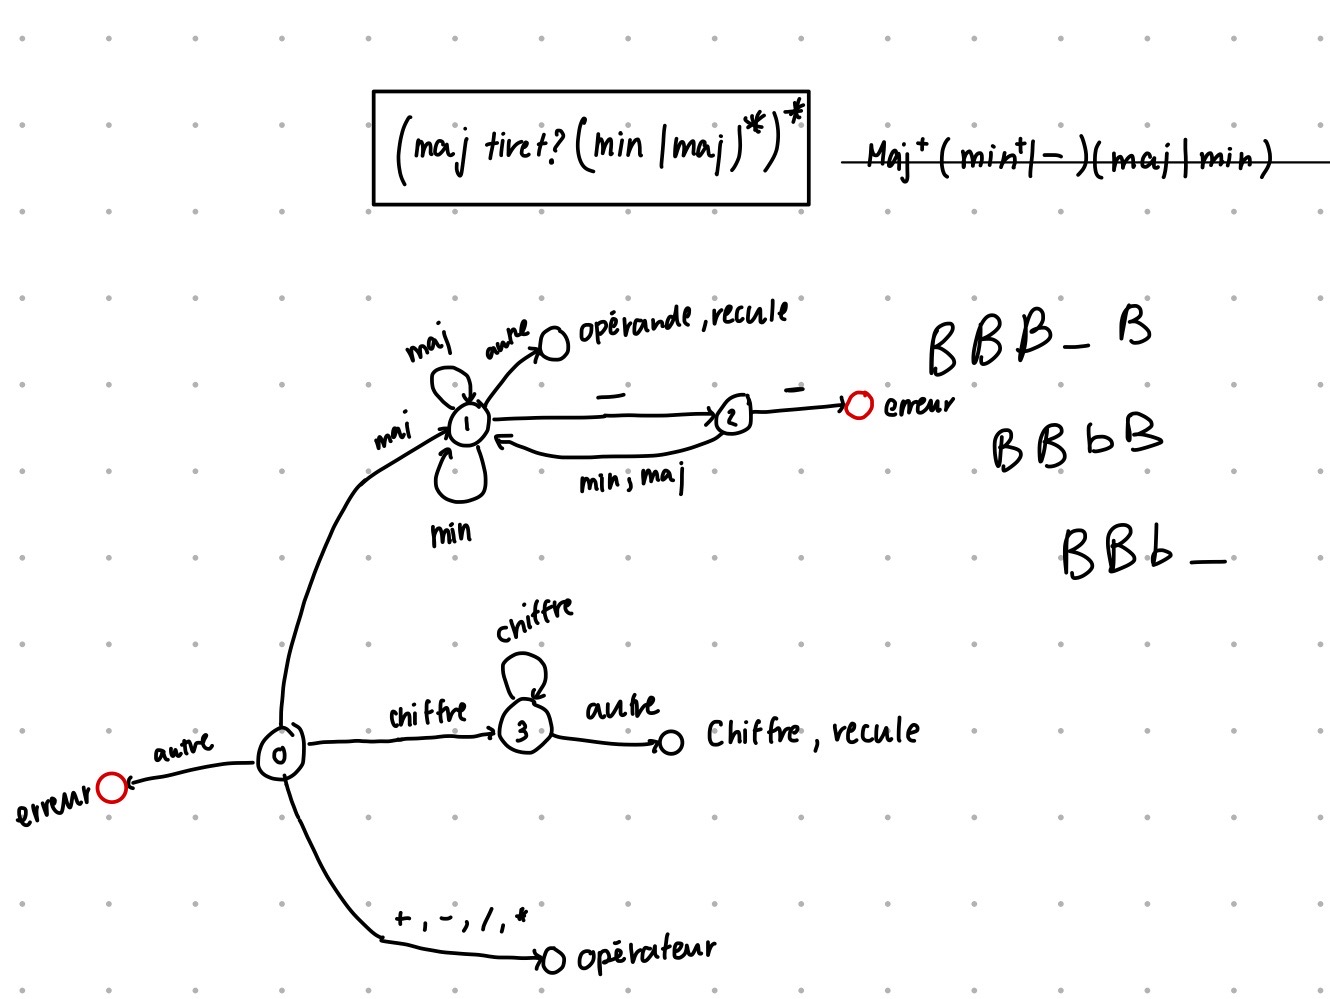 (maj tiret? (min | maj)*)*
Maj+ (min+ | -) (maj | min)
maj
autre
opérande, recule
BBB_B
maj
1
_
2
-
erreur
BBbB
min, maj
min
BBb_
chiffre
chiffre
3
autre
Chiffre, recule
autre
0
erreur
+, -, /, *
opérateur